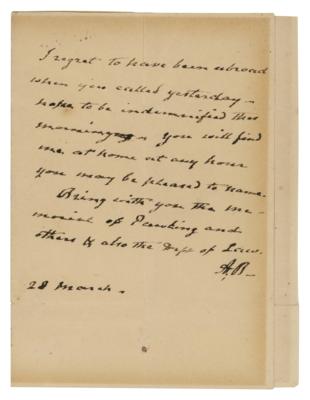 I regret to have been abroad
when you called yesterday.
hope to be indemnified this
morning you will find
me at home at any hour
you may be pleased to name.
Bring with you the me-
morial of Pawling and
others & also the Dep of Law.
A,B-
28 March.